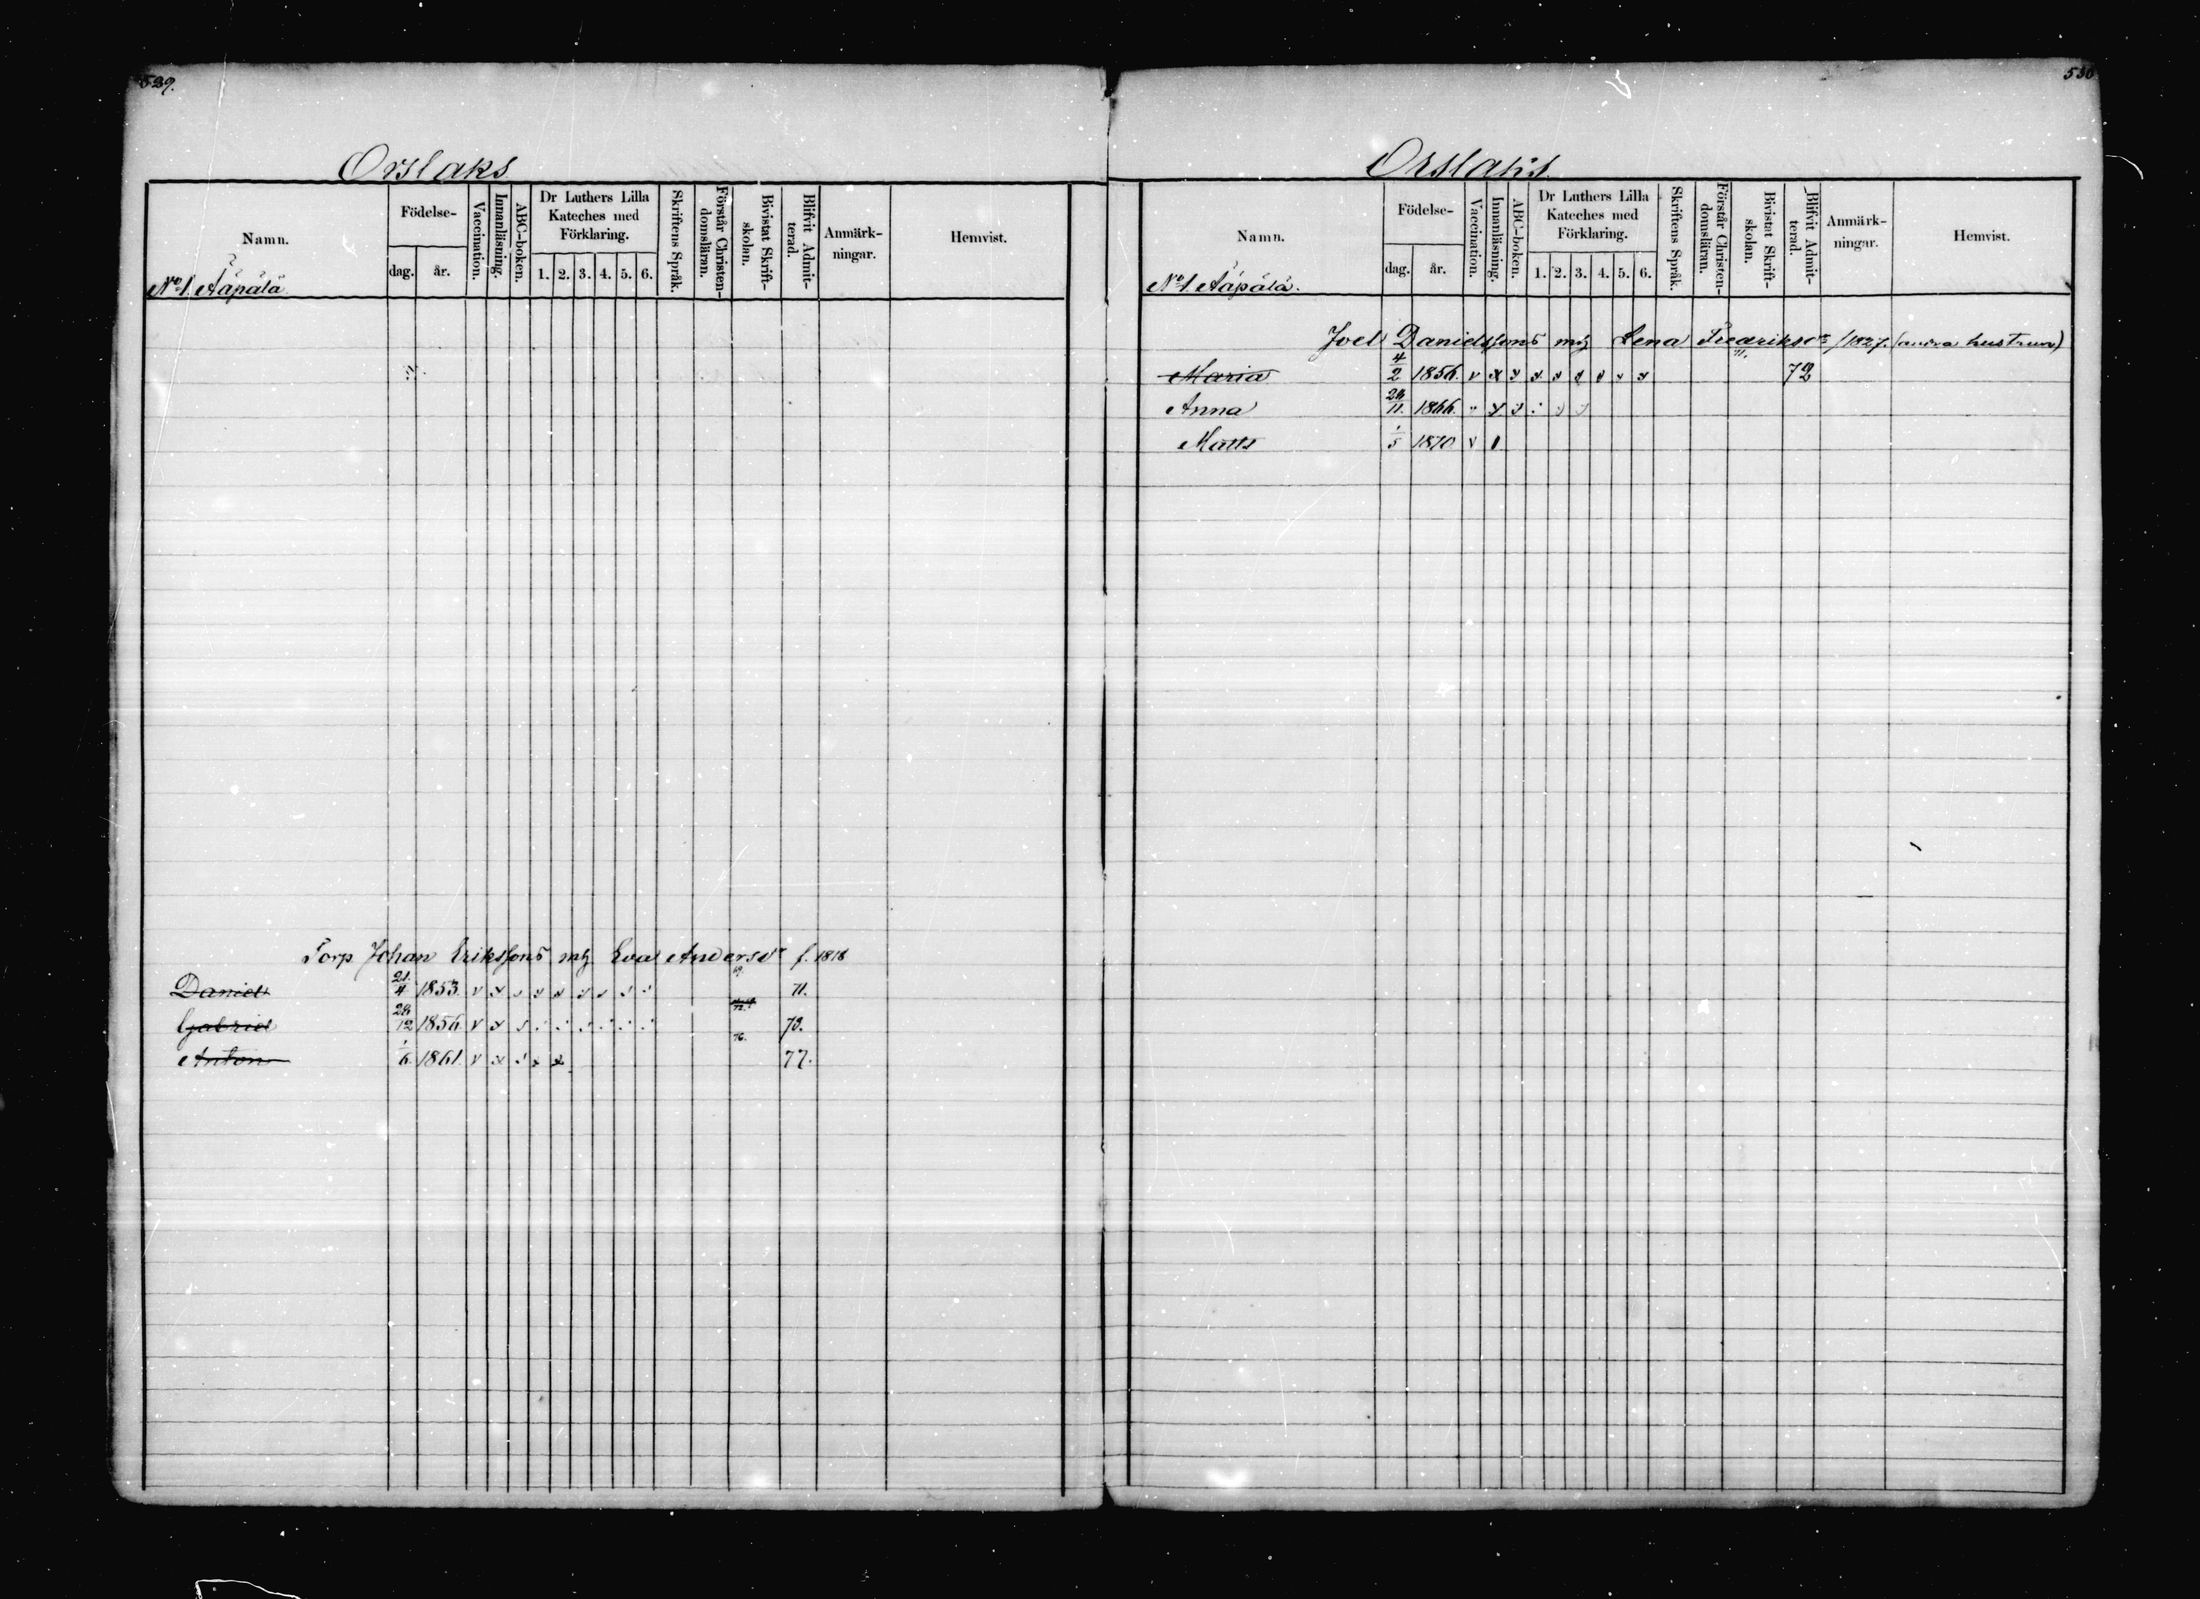 529.
Orslaks
Namn.
Födelse-
dag. år.
Vaccination.
Innanläsning.
ABC-boken.
Dr Luthers Lilla
Kateches med
Förklaring.
1. 2. 3. 4. 5. 6.
Skriftens Språk.
Förstår Christen-
domsläran.
Bivistat Skrift-
skolan.
Blifvit Admit-
terad.
Anmärk-
ningar.
Hemvist.
No 1. Ääpälä
Torp Johan Erikssons mg Eva Andersdr f. 1818
Daniel 21/4 1853. v x 69. 71.
Gabriel 12 1856. v x 73.
Anton 1/6. 1861. v x 76. 77.
530
Orslaks
Namn.
Födelse-
dag. år.
Vaccination.
Innanläsning.
ABC-boken.
Dr Luthers Lilla
Kateches med
Förklaring.
1. 2. 3. 4. 5. 6.
Skriftens Språk.
Förstår Christen-
domsläran.
Bivistat Skrift-
skolan.
Blifvit Admit-
terad.
Anmärk-
ningar.
Hemvist.
No 1. Ääpälä.
Joel Danielssons mg Lena Fredriksdr f 1827. (andra hustrun)
Maria 4/2 1856. v x 71. 72
Anna 11. 1866.
Matts 1/5 1870 v